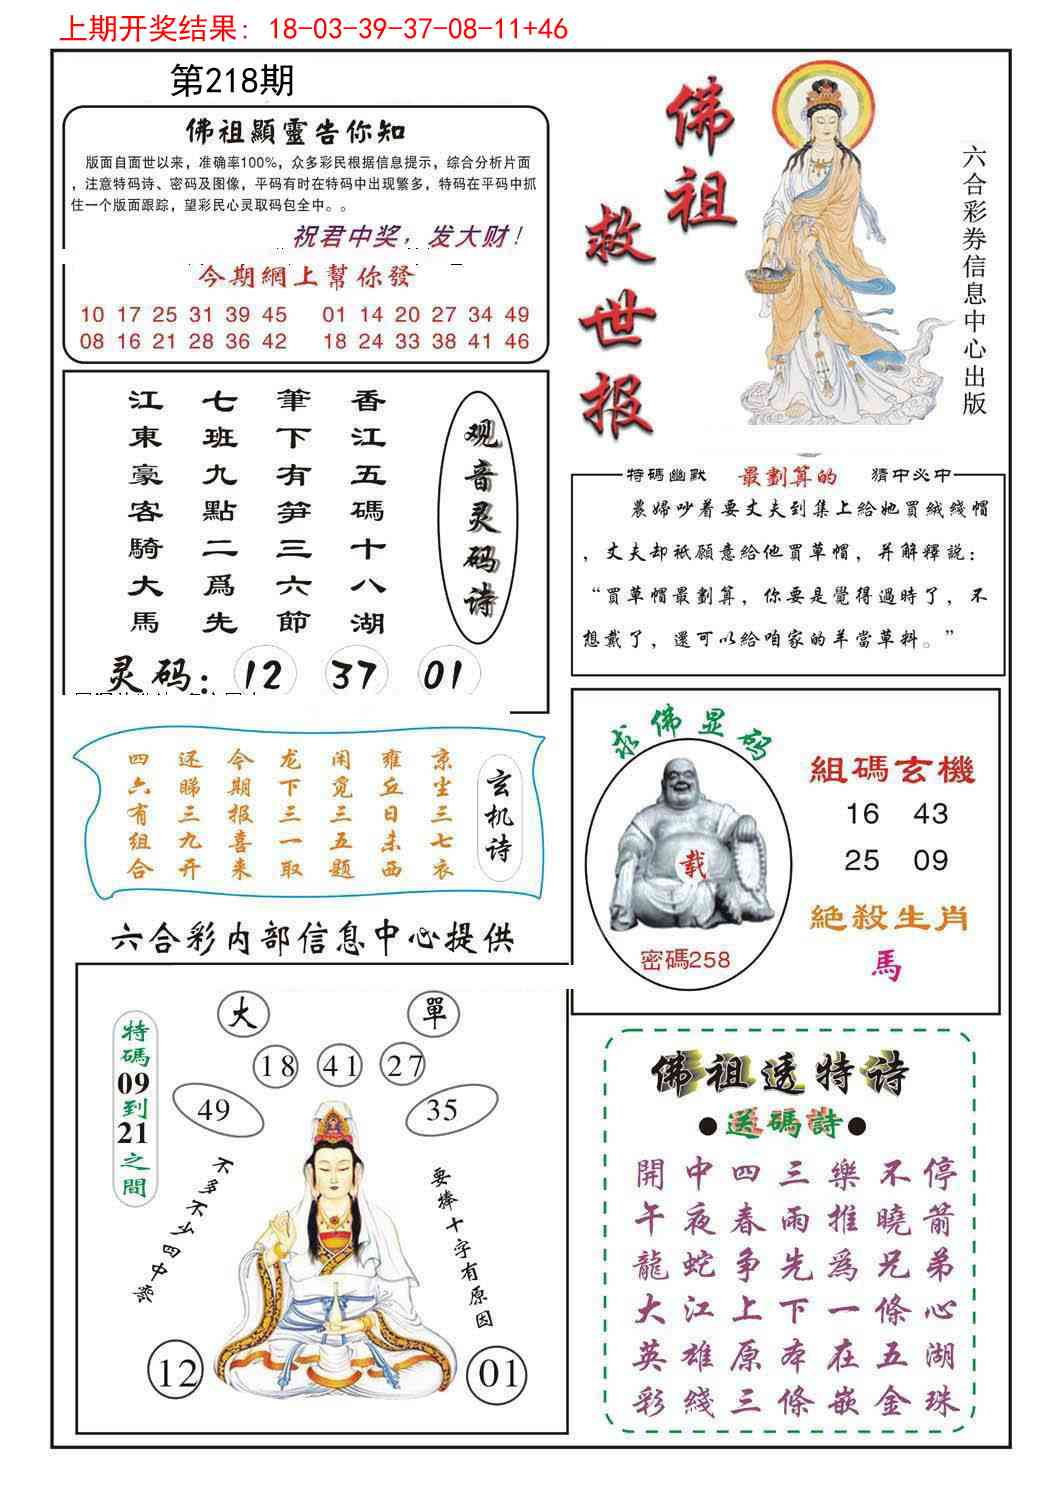 上期开奖结果: 18-03-39-37-08-11+46
第218期
佛祖顯靈告你知
版面自面世以来，准确率100%，众多彩民根据信息提示，综合分析片面
，注意特码诗、密码及图像，平码有时在特码中出现繁多，特码在平码中抓
住一个版面跟踪，望彩民心灵取码包全中。。
祝君中奖，发大财！
今期網上幫你發
10 17 25 31 39 45 01 14 20 27 34 49
08 16 21 28 36 42 18 24 33 38 41 46
佛祖
救世报
六合彩券信息中心出版
观音灵码诗
香江五碼十八湖
筆下有笋三六節
七班九點二爲先
江東豪客騎大馬
灵码：12 37 01
特碼幽默 最劃算的 猜中必中
農婦吵着要丈夫到集上給她買絨綫帽
，丈夫却衹願意給他買草帽，并解釋説：
“買草帽最劃算，你要是覺得過時了，不
想戴了，還可以給咱家的羊當草料。”
玄机诗
京尘三七衣
雍丘日未西
闲觅五题
龙下三一取
今期报喜来
还睇三九开
四六有组合
求佛显码
载
密碼258
組碼玄機
16 43
25 09
絶殺生肖
馬
六合彩内部信息中心提供
大 單
18 41 27
49 35
特碼09到21之間
不多不少四中齊
要捧十字有原因
12 01
佛祖透特诗
●送碼詩●
開中四三樂不停
午夜春雨推曉箭
龍蛇争先爲兄弟
大江上下一條心
英雄原本在五湖
彩綫三條嵌金珠